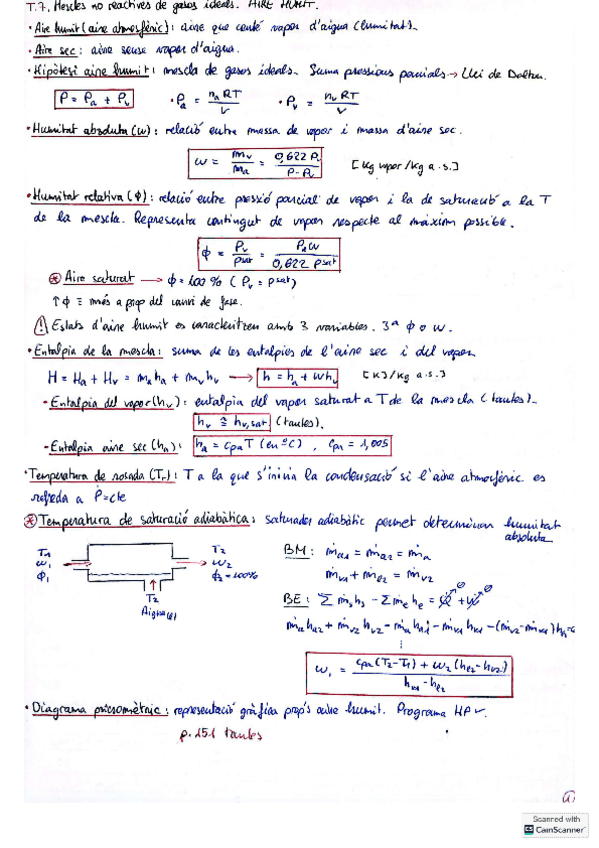 T.7. Mescles no reactives de gasos ideals. AIRE HUMIT.
· Aire humit (aire atmosfèric): aire que conté vapor d'aigua (humitat).
· Aire sec: aire sense vapor d'aigua.
· Hipòtesi aire humit: mescla de gasos ideals. Suma pressions parcials → Llei de Dalton.
P = Pa + Pv · Pa = na RT / V · Pv = nv RT / V
· Humitat absoluta (w): relació entre massa de vapor i massa d'aire sec.
w = mv / ma = 0,622 Pv / P - Pv [Kg vapor/Kg a.s.]
· Humitat relativa (ϕ): relació entre pressió parcial de vapor i la de saturació a la T
de la mescla. Representa contingut de vapor respecte al màxim possible.
ϕ = Pv / Psat = Pa w / 0,622 Psat
* Aire saturat → ϕ = 100 % (Pv = Psat)
↑ϕ ≡ més a prop del canvi de fase.
! Estats d'aire humit es caracteritzen amb 3 variables. 3ª ϕ o w.
· Entalpia de la mescla: suma de les entalpies de l'aire sec i del vapor.
H = Ha + Hv = ma ha + mv hv → h = ha + w hv [KJ/Kg a.s.]
- Entalpia del vapor (hv): entalpia del vapor saturat a T de la mescla (taules).
hv ≅ hv,sat (taules).
- Entalpia aire sec (ha): ha = cpa T (en ºC) , cpa = 1,005
· Temperatura de rosada (Tr): T a la que s'inicia la condensació si l'aire atmosfèric es
refreda a P=cte
* Temperatura de saturació adiabàtica: saturador adiabàtic permet determinar humitat
absoluta
T1 T2 BM: ṁa1 = ṁa2 = ṁa
w1 w2
ϕ1 ϕ2 = 100% ṁv1 + ṁl2 = ṁv2
T2 BE: Σ ṁs hs - Σ ṁe he = Q̇ + Ẇ
Aigua(l)
ṁa ha2 + ṁv2 hv2 - ṁa ha1 - ṁv1 hv1 - (ṁv2 - ṁv1) hl2=0
w1 = cpa (T2 - T1) + w2 (hl2 - hv2) / hv1 - hl2
· Diagrama psicromètric: representació gràfica prop's aire humit. Programa HP✓.
p. 151 taules
Scanned with
CamScanner